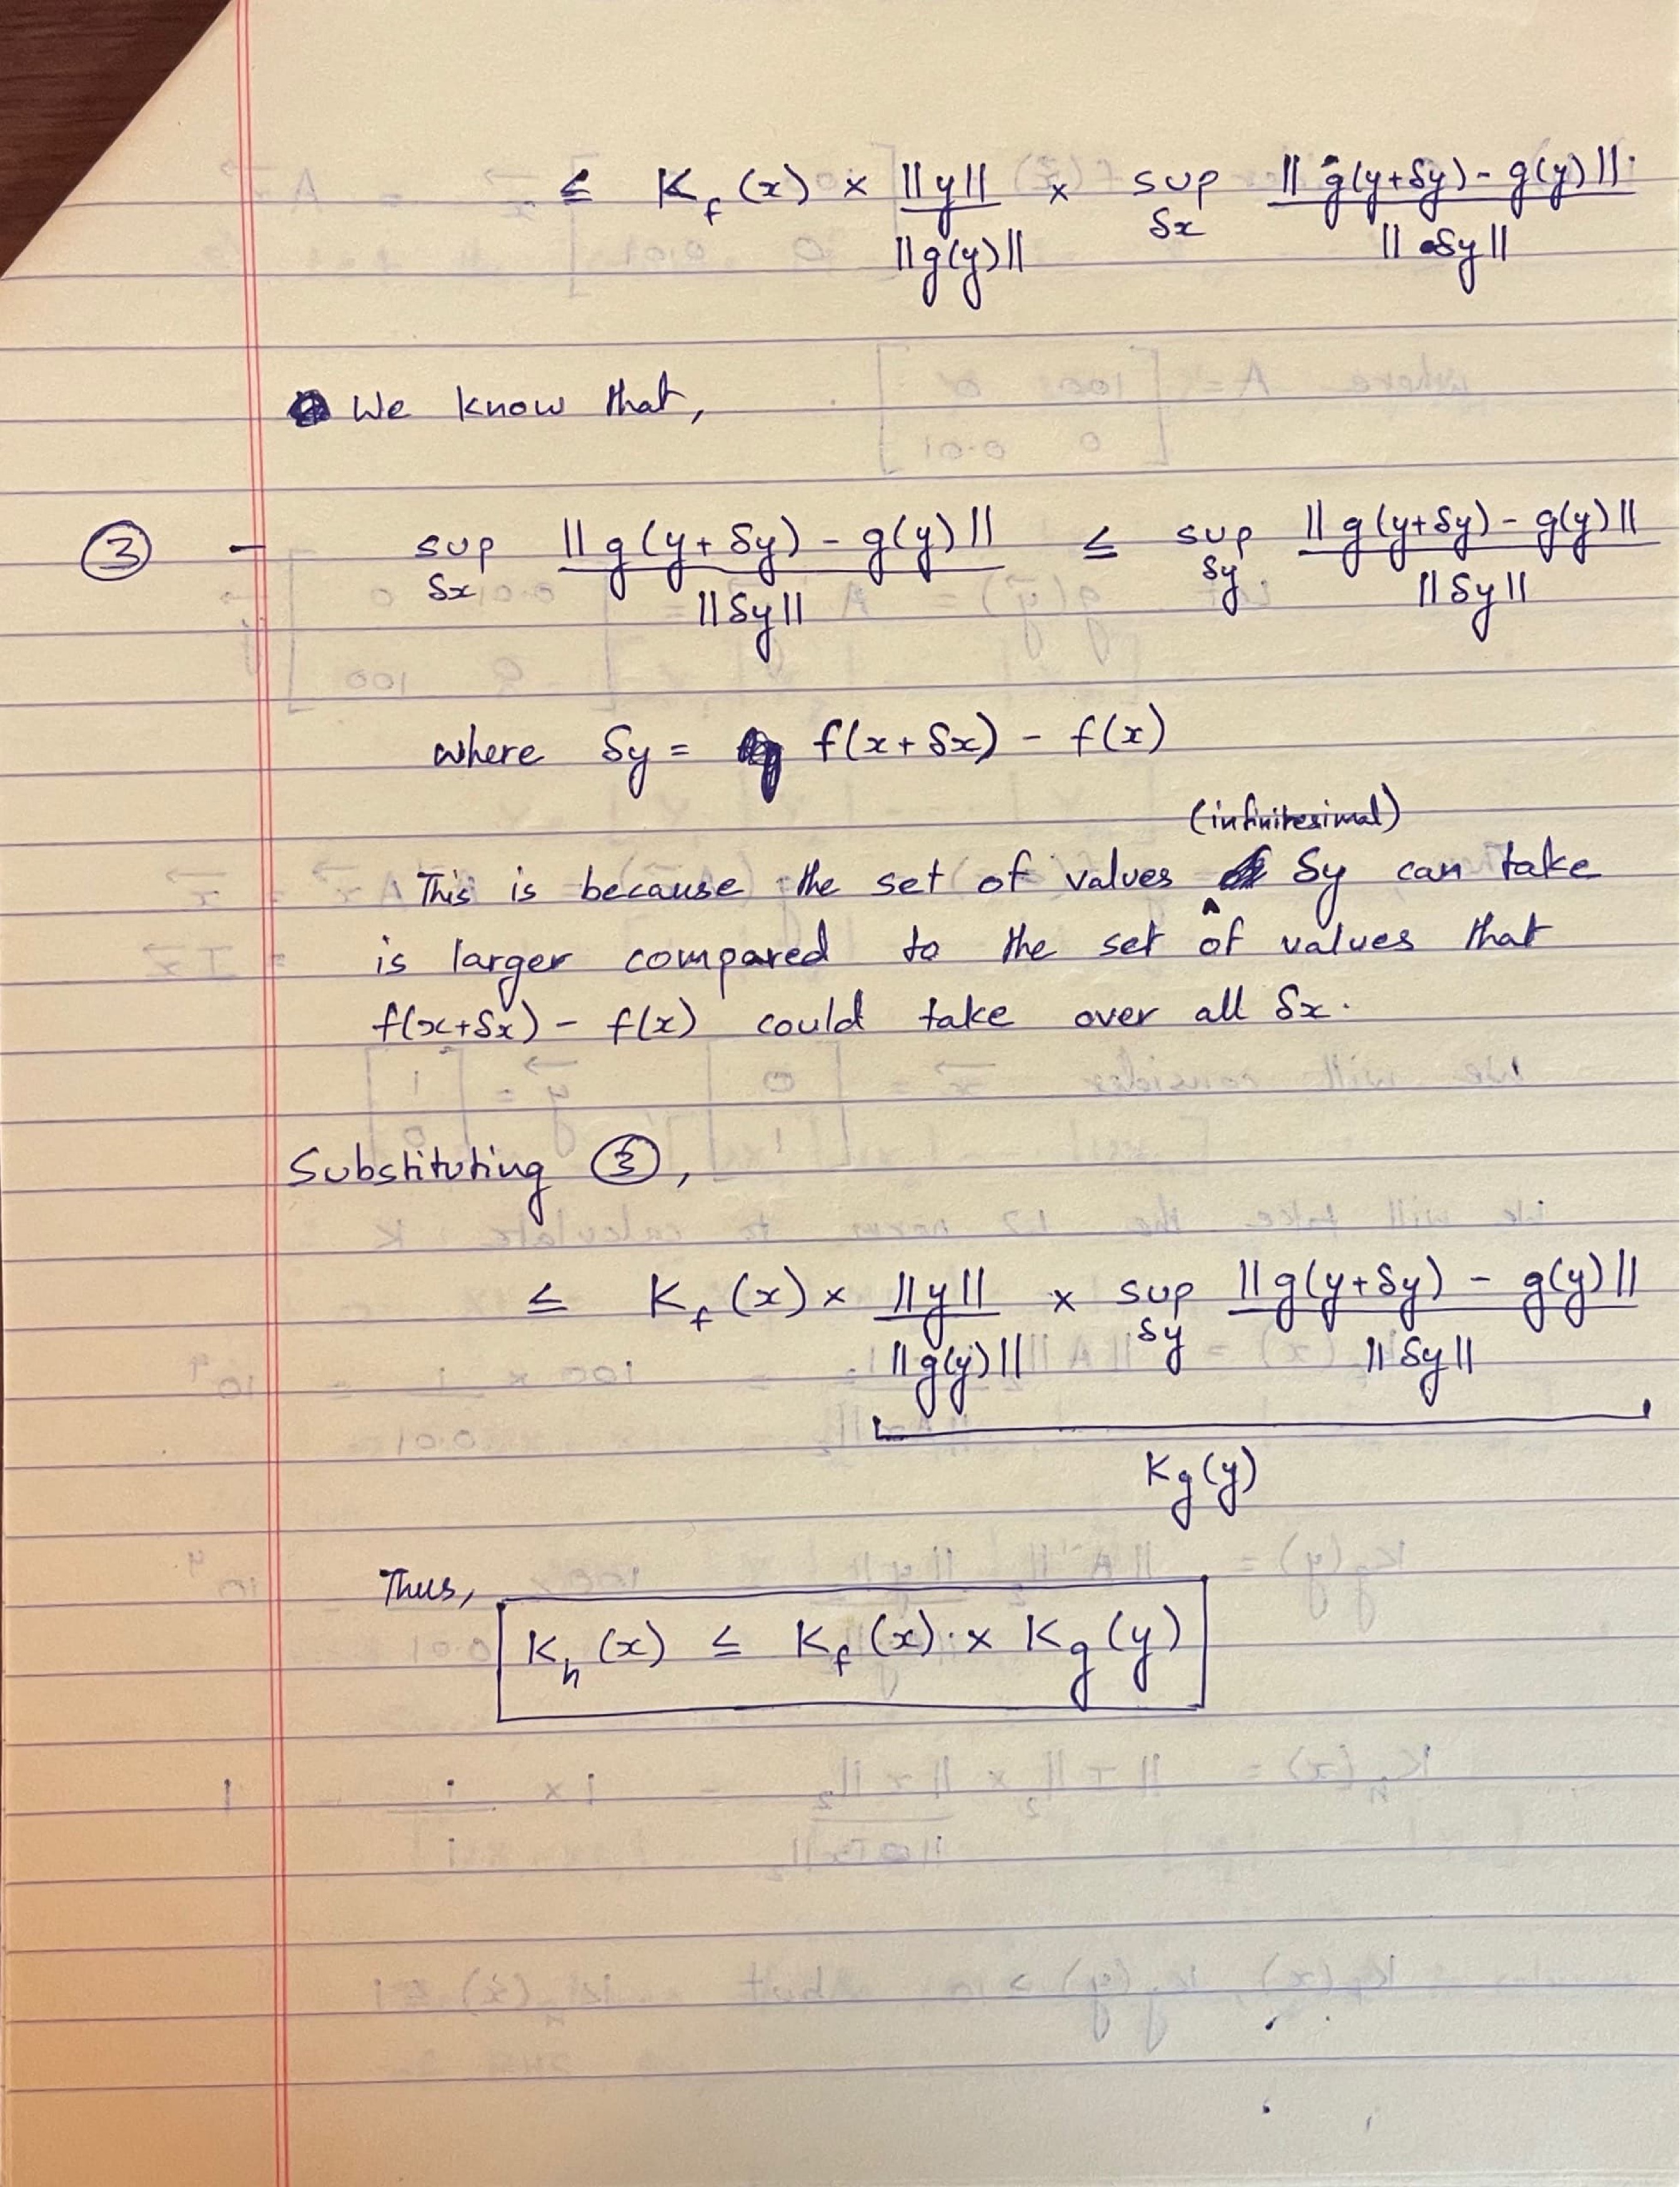 ≤ K_f (x) × ||y|| / ||g(y)|| × sup_δx ||g(y+δy) - g(y)|| / ||δy||
We know that,
③ - sup_δx ||g(y+δy) - g(y)|| / ||δy|| ≤ sup_δy ||g(y+δy) - g(y)|| / ||δy||
where δy = f(x+δx) - f(x)
(infinitesimal)
This is because the set of values ^ δy can take
is larger compared to the set of values that
f(x+δx) - f(x) could take over all δx.
Substituting ③,
≤ K_f (x) × ||y|| / ||g(y)|| × sup_δy ||g(y+δy) - g(y)|| / ||δy||
K_g (y)
Thus,
K_h (x) ≤ K_f (x) · × K_g (y)